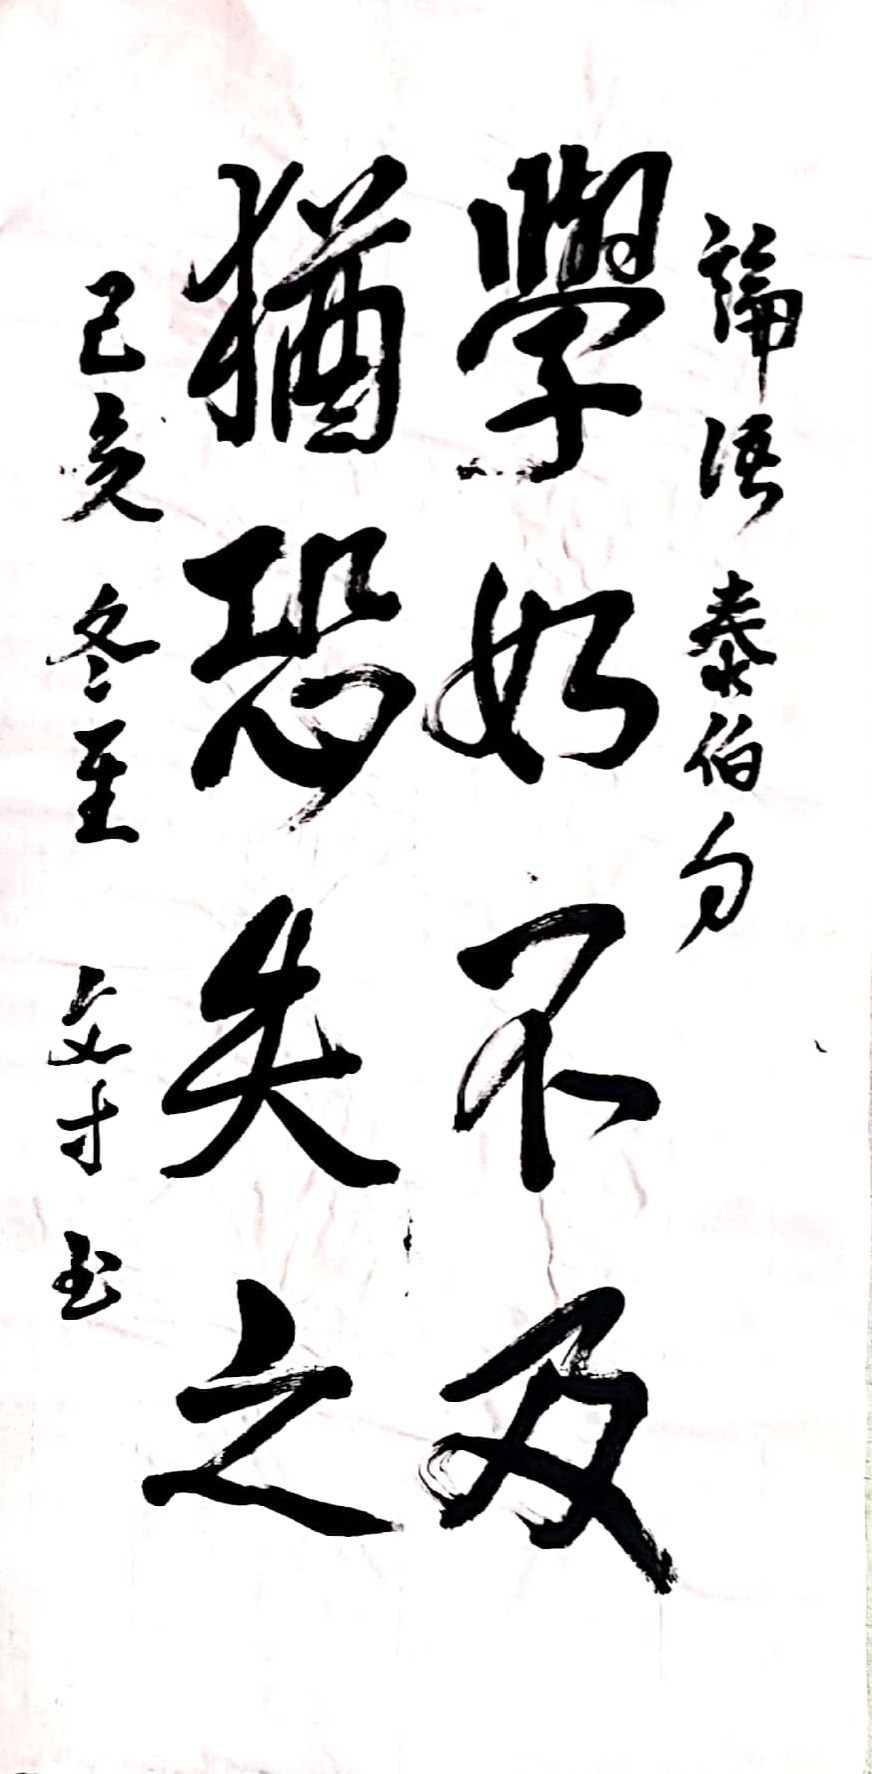 論语泰伯句
學如不及
猶恐失之
己亥冬至 文才书